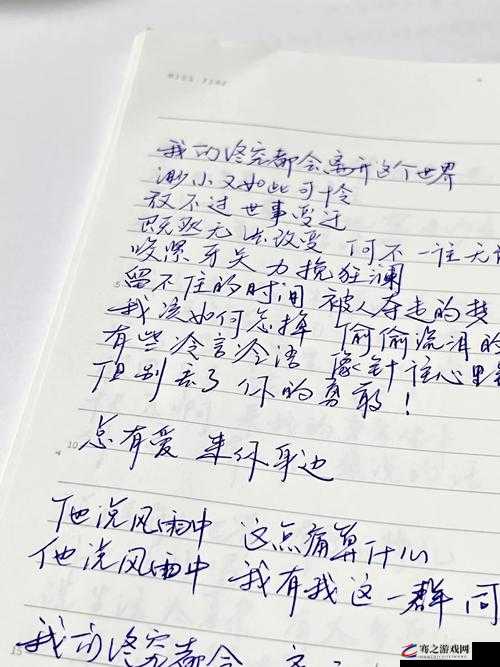 我们终究都会离开这个世界
渺小又如此可怜
敌不过世事变迁
既然无法改变 何不一往无
咬紧牙关力挽狂澜
留不住的时间 被人夺走的梦
我该如何忘掉 偷偷流泪的
有些冷言冷语 像针往心里
但别丢了你的勇敢！
总有爱 来你身边
他说风雨中 这点痛算什么
他说风雨中 我有我这一群 同
我们终究都会
5
10
15
骞之游戏网